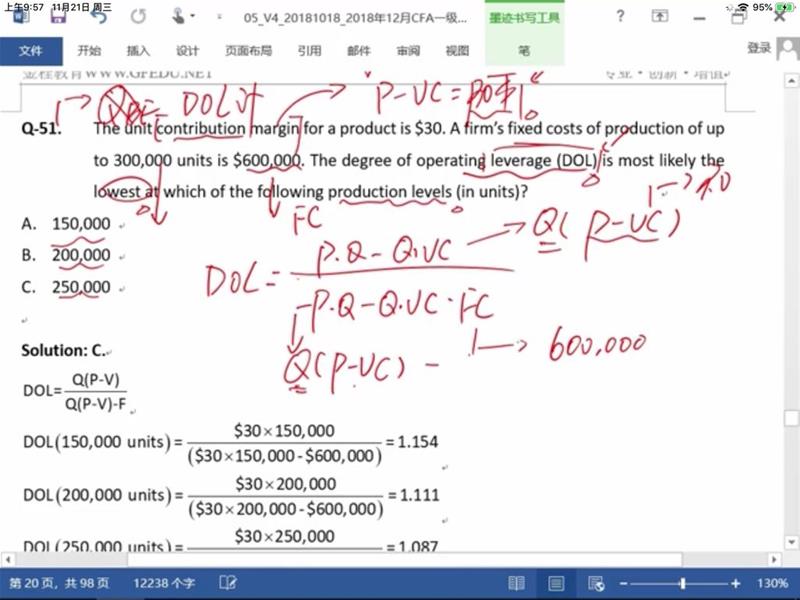 上午9:57 11月21日 周三
95%
05_V4_20181018_2018年12月CFA一级...
墨迹书写工具
?
登录
文件 开始 插入 设计 页面布局 引用 邮件 审阅 视图 笔
金程教育WWW.GFEDU.NET 专业·创新·增值
DOL
P-VC=
Q-51. The unit contribution margin for a product is $30. A firm's fixed costs of production of up
to 300,000 units is $600,000. The degree of operating leverage (DOL) is most likely the
lowest at which of the following production levels (in units)?
30
FC
A. 150,000
B. 200,000
C. 250,000
DOL = P·Q-Q·VC → Q(P-VC)
P·Q-Q·VC-FC
Q(P-VC) - → 600,000
Solution: C.
DOL= Q(P-V)
Q(P-V)-F
DOL(150,000 units)= $30×150,000
($30×150,000-$600,000) =1.154
DOL(200,000 units)= $30×200,000
($30×200,000-$600,000) =1.111
DOL(250,000 units)= $30×250,000
=1.087
第 20 页，共 98 页 12238 个字 130%